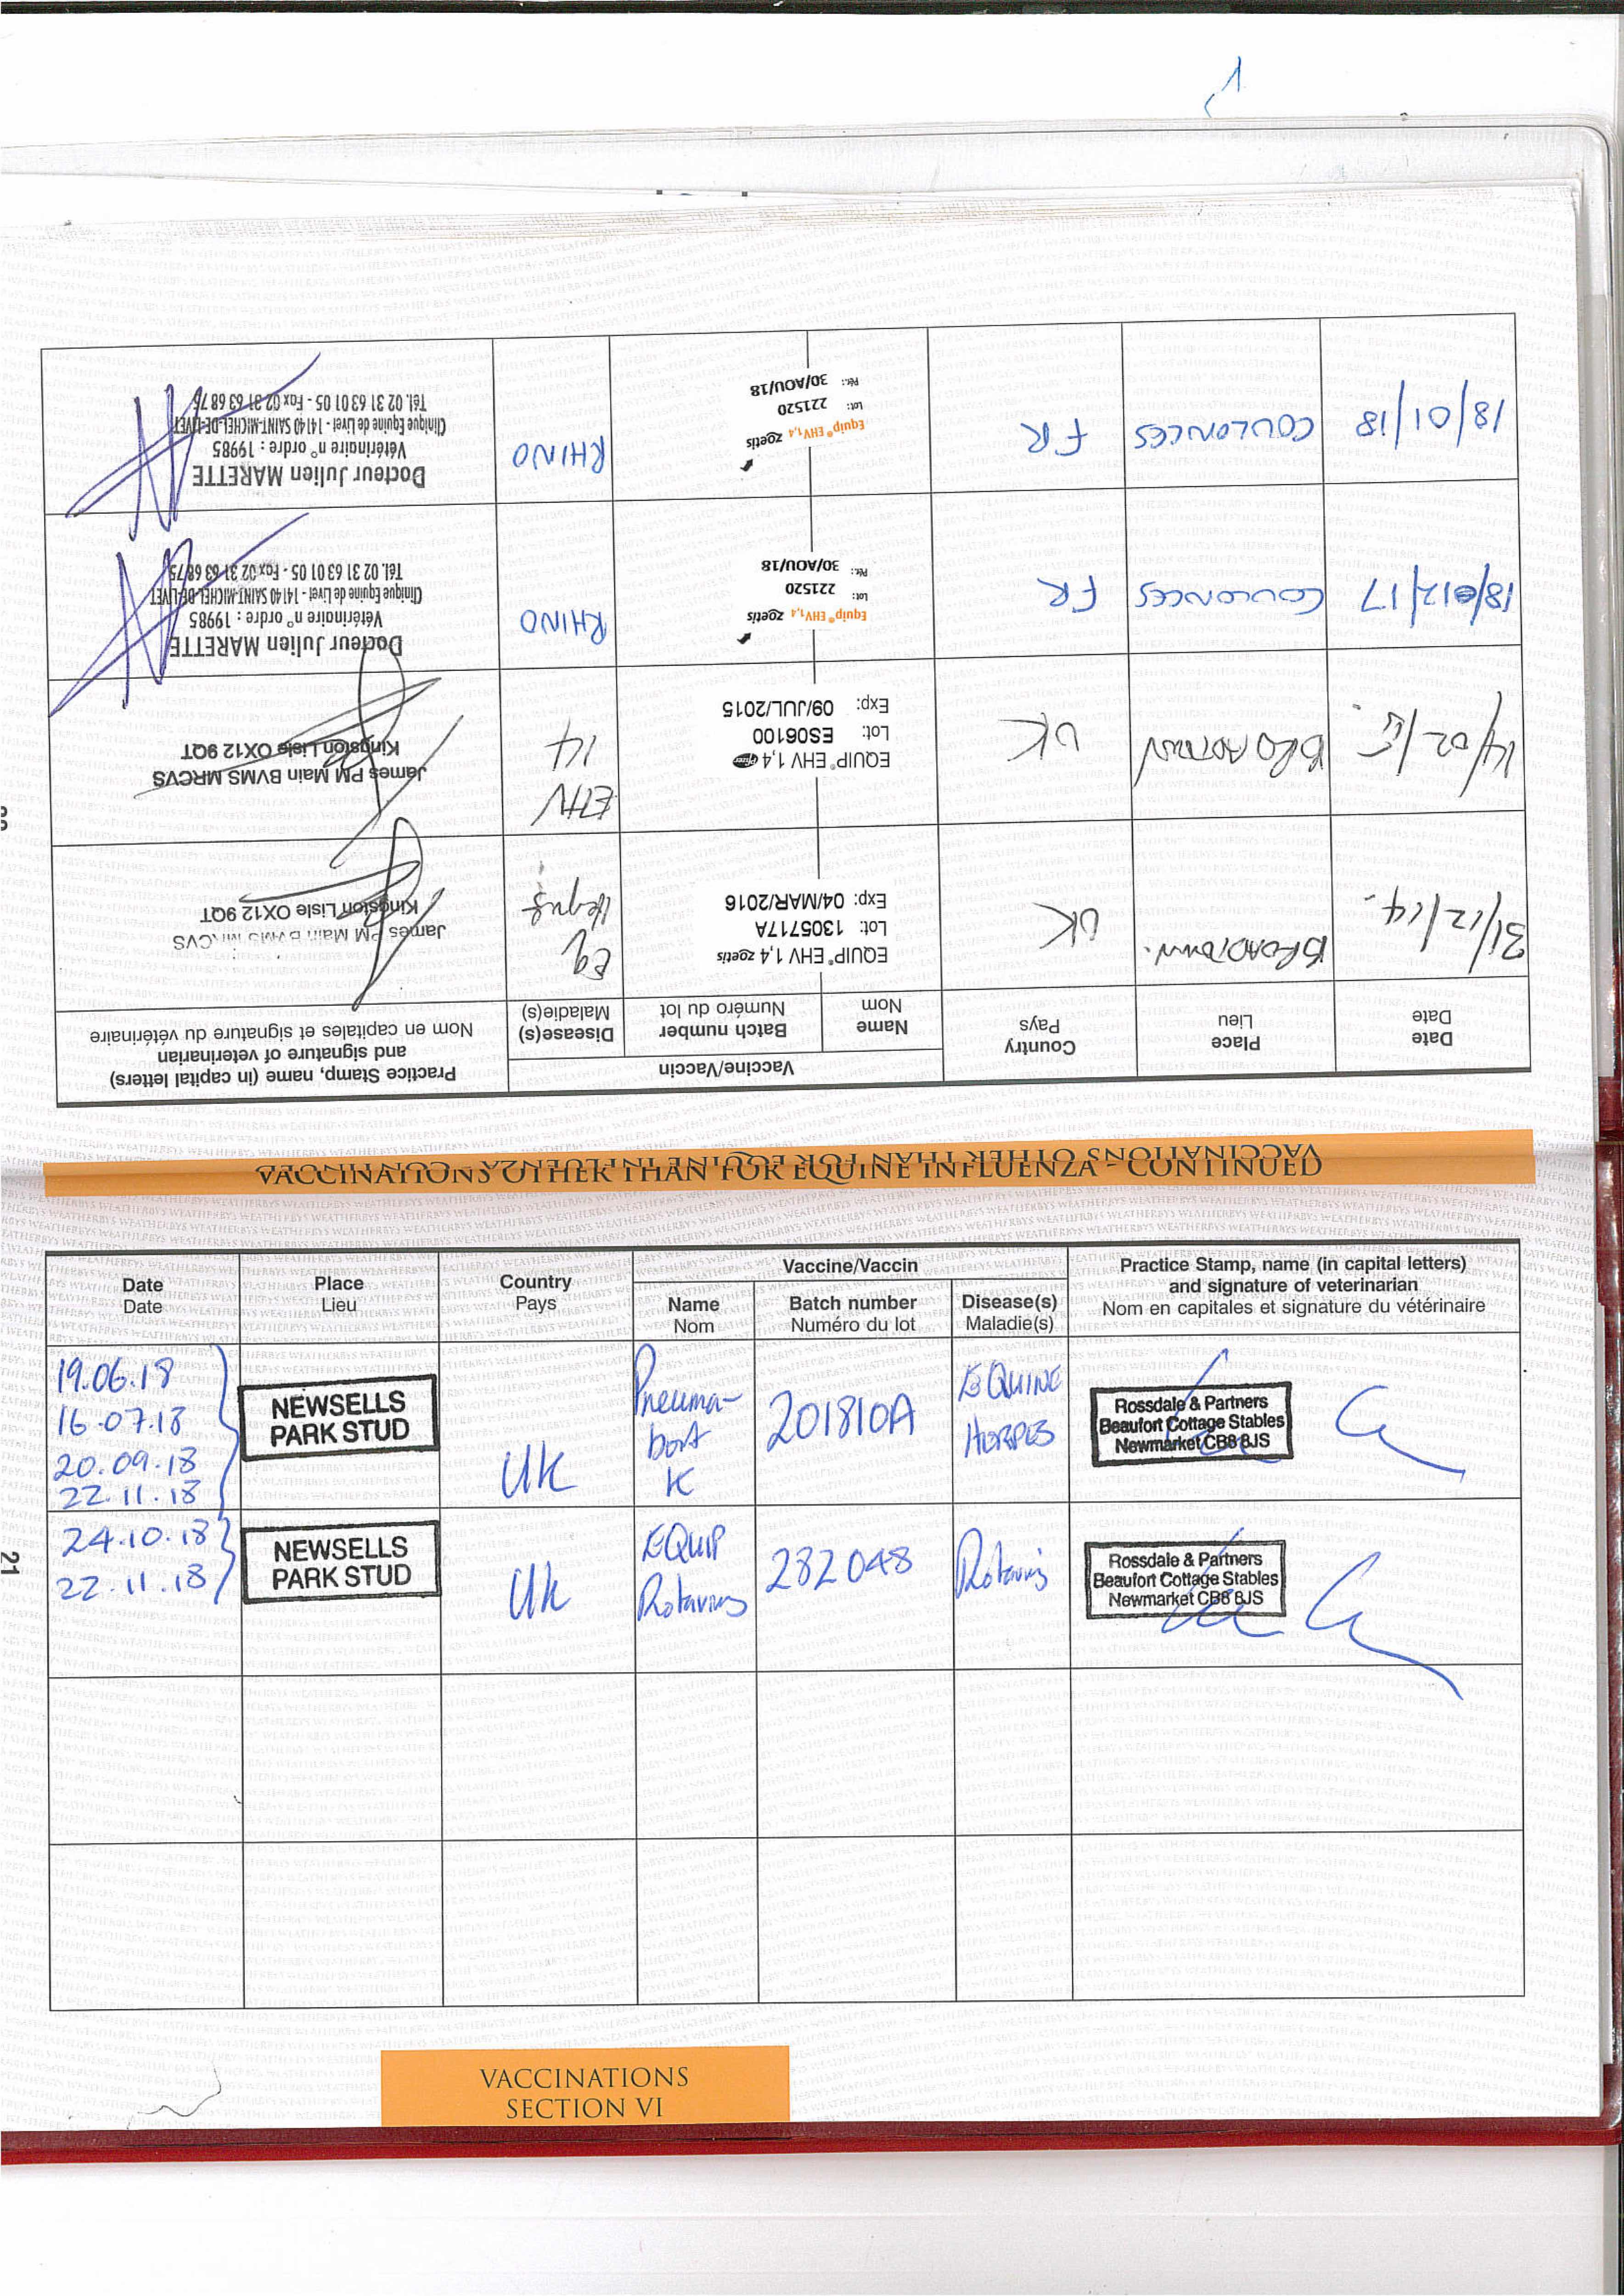 VACCINATIONS OTHER THAN FOR EQUINE INFLUENZA - CONTINUED
Date
Date
Place
Lieu
Country
Pays
Vaccine/Vaccin
Name
Nom
Batch number
Numéro du lot
Disease(s)
Maladie(s)
Practice Stamp, name (in capital letters)
and signature of veterinarian
Nom en capitales et signature du vétérinaire
31/12/14.
UK
EQUIP® EHV 1,4 zoetis
Lot: 130571 7A
Exp: 04/MAR/2016
Eq
Herpes
James PM Main BVMS MRCVS
Kingston Lisle OX12 9QT
14/02/15.
UK
EQUIP® EHV 1,4 Pfizer
Lot: ES06100
Exp: 09/JUL/2015
EHV
14
James PM Main BVMS MRCVS
Kingston Lisle OX12 9QT
18/12/17
COULONCES
FR
Equip® EHV1,4 zoetis
Lot: 221520
Pér.: 30/AOU/18
RHINO
Docteur Julien MARETTE
Vétérinaire n° ordre : 19985
Clinique Equine de Livet - 14140 SAINT-MICHEL-DE-LIVET
Tél. 02 31 63 01 05 - Fax 02 31 63 68 75
18/01/18
COULONCES
FR
Equip® EHV1,4 zoetis
Lot: 221520
Pér.: 30/AOU/18
RHINO
Docteur Julien MARETTE
Vétérinaire n° ordre : 19985
Clinique Equine de Livet - 14140 SAINT-MICHEL-DE-LIVET
Tél. 02 31 63 01 05 - Fax 02 31 63 68 75
VACCINATIONS OTHER THAN FOR EQUINE INFLUENZA - CONTINUED
Date
Date
Place
Lieu
Country
Pays
Vaccine/Vaccin
Name
Nom
Batch number
Numéro du lot
Disease(s)
Maladie(s)
Practice Stamp, name (in capital letters)
and signature of veterinarian
Nom en capitales et signature du vétérinaire
19.06.18
16.07.18
20.09.18
22.11.18
NEWSELLS
PARK STUD
UK
Pneuma-
bort
K
201810A
EQUINE
HERPES
Rossdale & Partners
Beaufort Cottage Stables
Newmarket CB8 8JS
24.10.18
22.11.18
NEWSELLS
PARK STUD
UK
EQUIP
Rotavirus
282048
Rotavirus
Rossdale & Partners
Beaufort Cottage Stables
Newmarket CB8 8JS
21
VACCINATIONS
SECTION VI